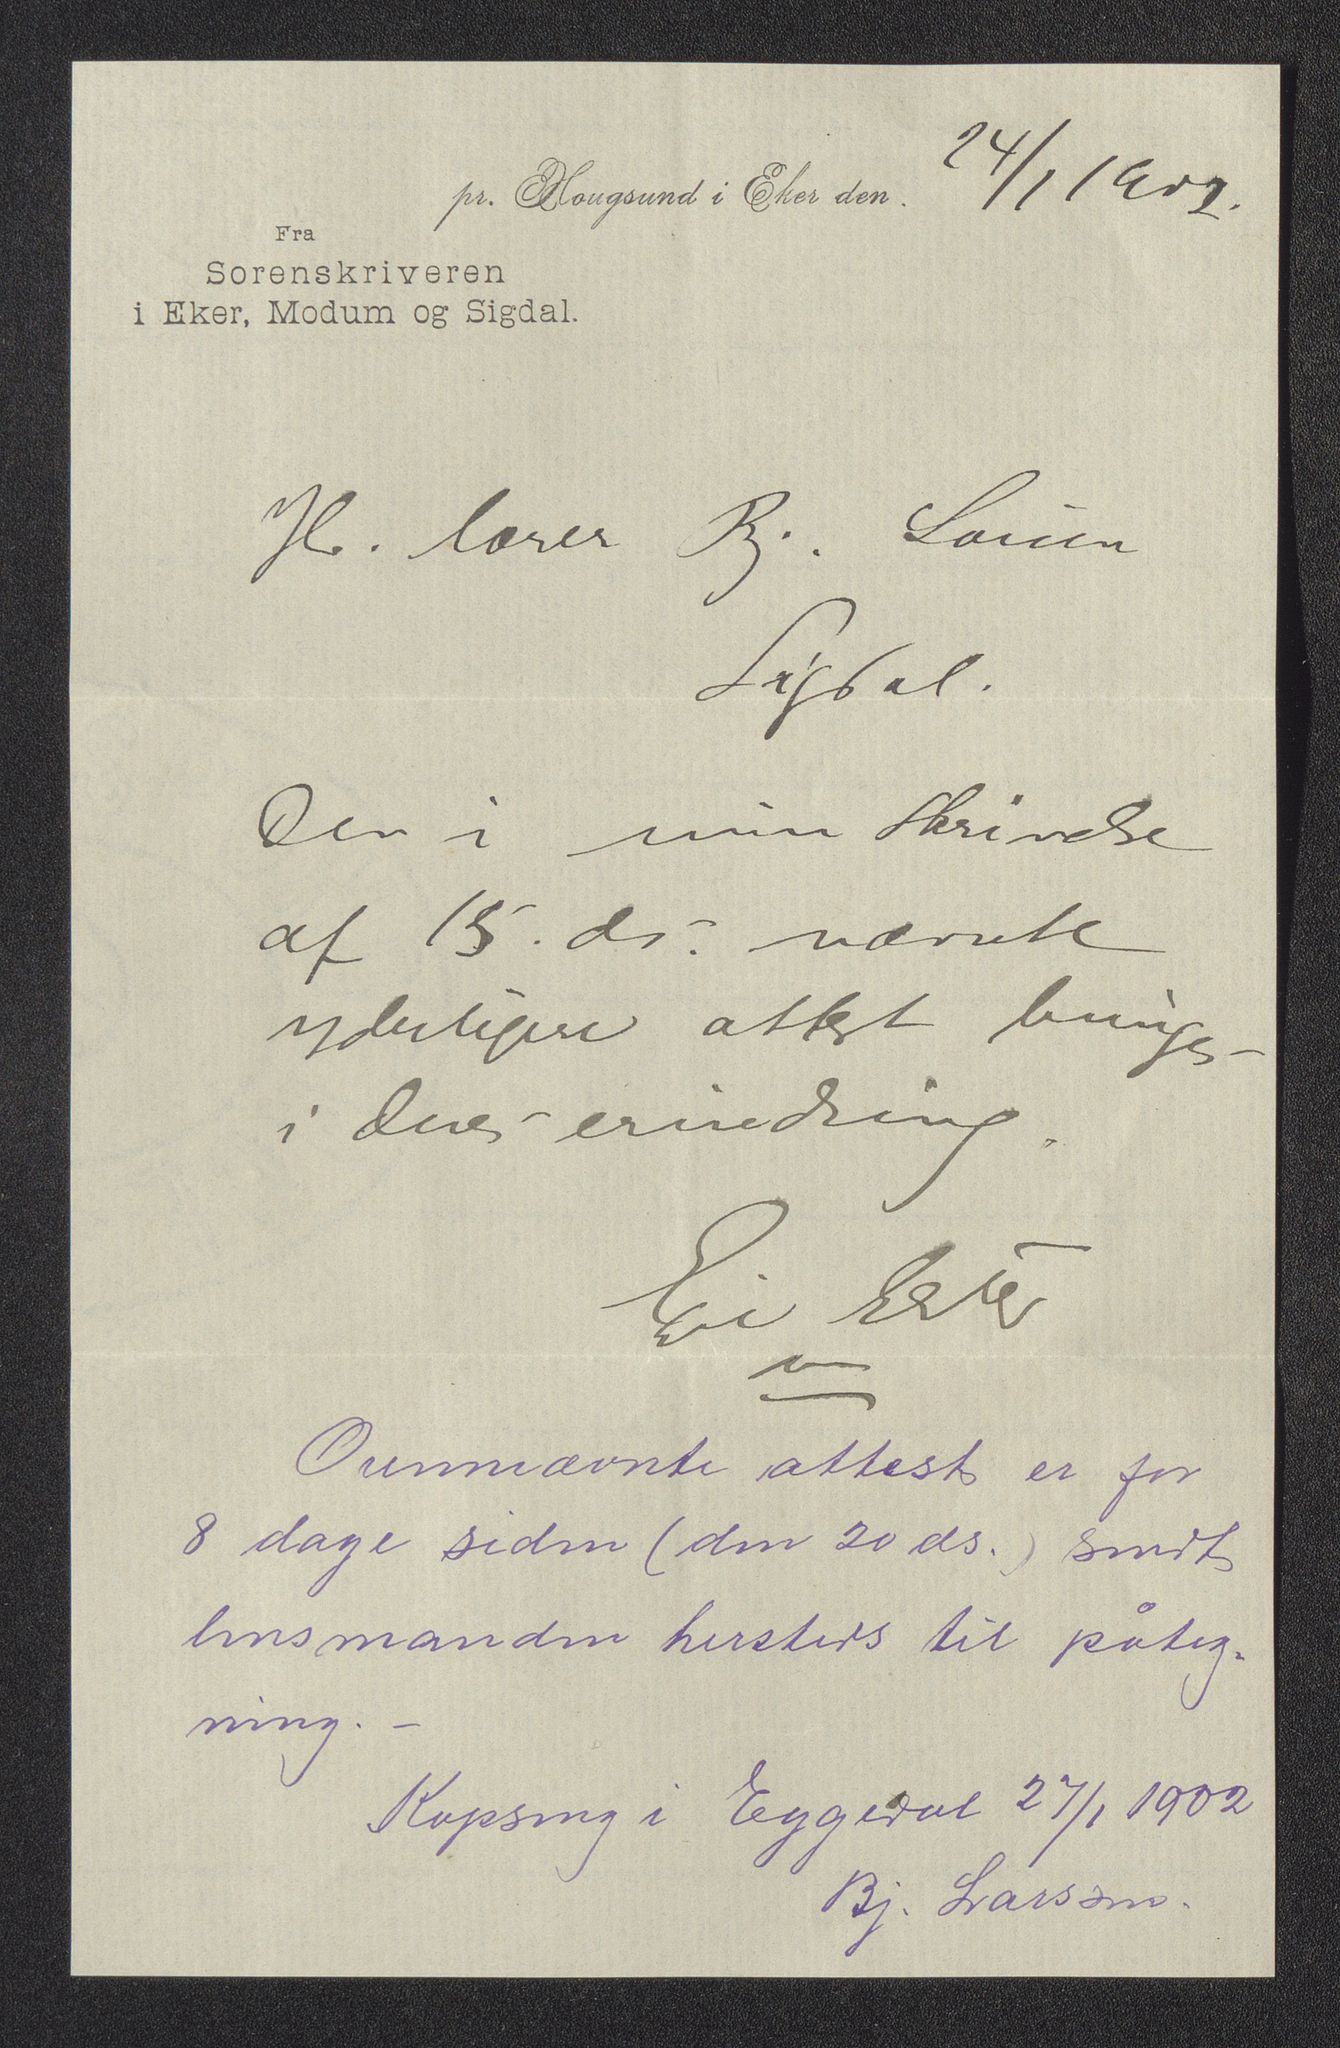 pr. Hougsund i Eker den 24/1 1902.
Fra
Sorenskriveren
i Eker, Modum og Sigdal.
Hr. lærer Bj. Larsen
Sigdal.
Den i min skrivelse
af 15. ds. nævnte
yderligere attest bringes
i Deres erindring.
Ovennævnte attest er for
8 dage siden (den 20 ds.) sendt
lensmanden hersteds til påteg-
ning. -
Kopseng i Eggedal 27/1 1902
Bj. Larsen.